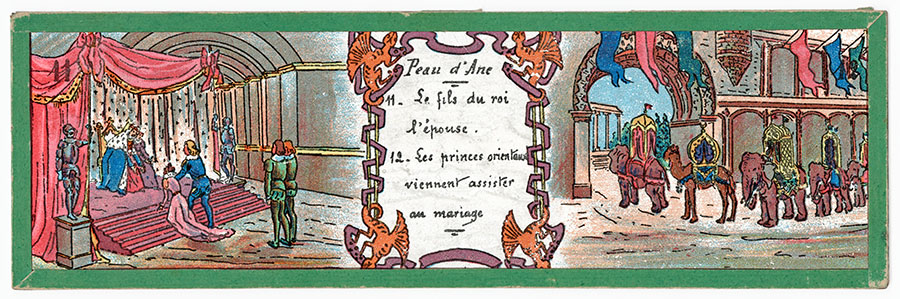 Peau d'Ane
11 - Le fils du roi
l'épouse.
12 - Les princes orientaux
viennent assister
au mariage